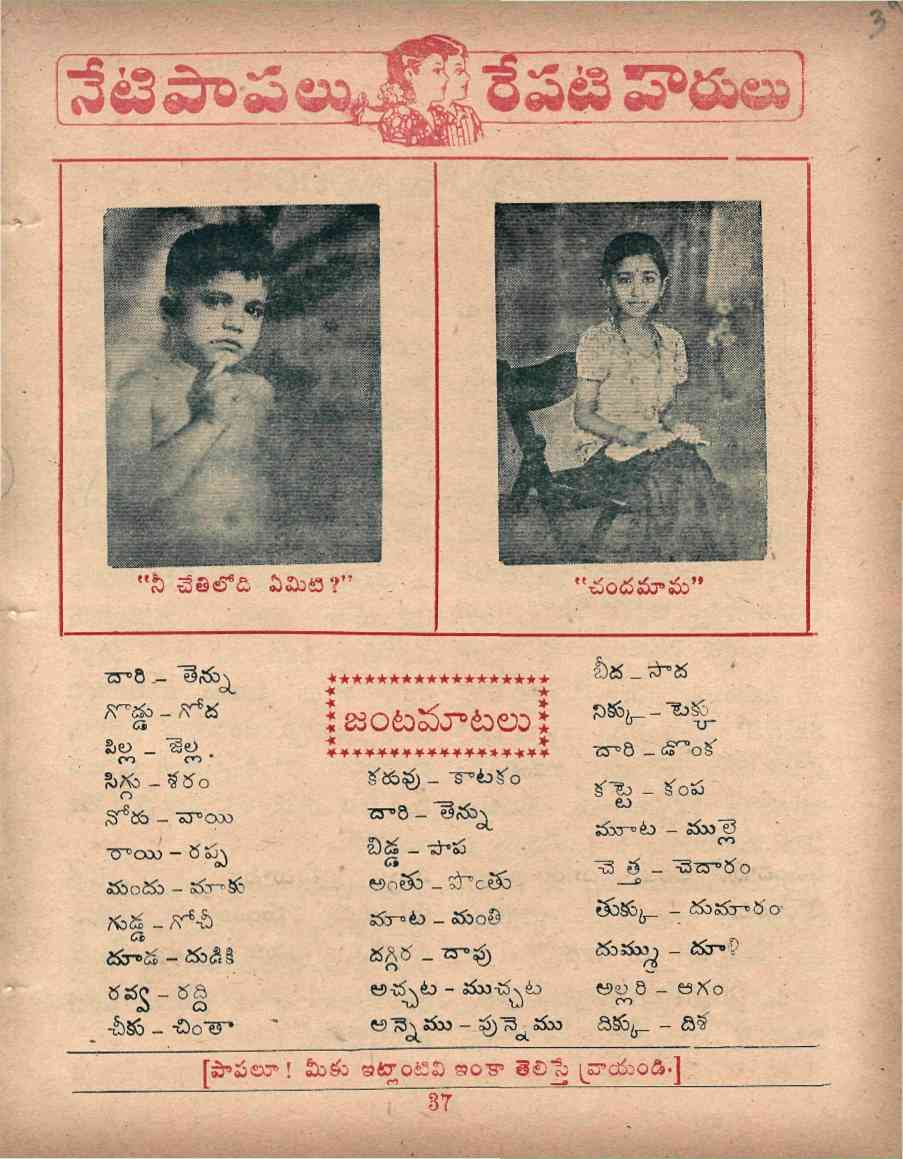 నేటి పాపలు రేపటి పౌరులు
"నీ చేతిలోది ఏమిటి?"
"చందమామ"
జంటమాటలు
దారి – తెన్ను
గొడ్డు – గోద
పిల్ల – జెల్ల.
సిగ్గు – శరం
నోరు – వాయి
రాయి – రప్ప
మందు – మాకు
గుడ్డ – గోచీ
దూడ – దుడికి
రవ్వ – రద్ది
చీకు – చింతా
కరువు – కాటకం
దారి – తెన్ను
బిడ్డ – పాప
అంతు – పొంతు
మాట – మంతి
దగ్గిర – దాపు
అచ్చట – ముచ్చట
అన్నెము – పున్నెము
బీద – సాద
నిక్కు – టెక్కు
దారి – డొంక
కట్టె – కంప
మూట – ముల్లె
చెత్త – చెదారం
తుక్కు – దుమారం
దుమ్ము – దూళి
అల్లరి – ఆగం
దిక్కు – దిశ
[పాపలూ! మీకు ఇట్లాంటివి ఇంకా తెలిస్తే వ్రాయండి.]
37